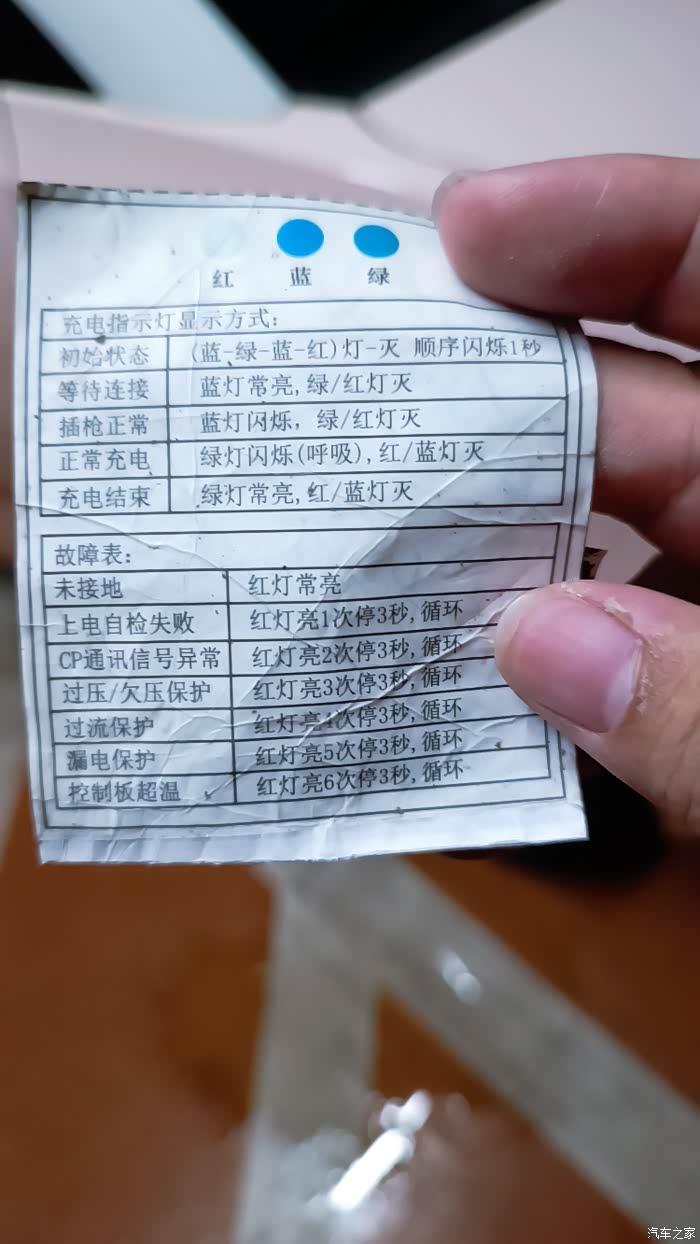 红 蓝 绿
充电指示灯显示方式:
初始状态 (蓝-绿-蓝-红)灯-灭 顺序闪烁1秒
等待连接 蓝灯常亮,绿/红灯灭
插枪正常 蓝灯闪烁, 绿/红灯灭
正常充电 绿灯闪烁(呼吸),红/蓝灯灭
充电结束 绿灯常亮,红/蓝灯灭
故障表:
未接地 红灯常亮
上电自检失败 红灯亮1次停3秒,循环
CP通讯信号异常 红灯亮2次停3秒,循环
过压/欠压保护 红灯亮3次停3秒,循环
过流保护 红灯亮4次停3秒,循环
漏电保护 红灯亮5次停3秒,循环
控制板超温 红灯亮6次停3秒,循环
汽车之家